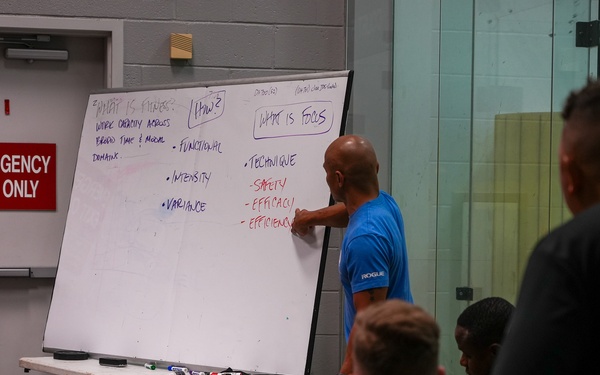 GENCY
ONLY
WHAT IS FITNESS?
WORK CAPACITY ACROSS
BROAD TIME & MODAL
DOMAINS
HOW?
• FUNCTIONAL
• INTENSITY
• VARIANCE
WHAT IS FOCUS
• TECHNIQUE
- SAFETY
- EFFICACY
- EFFICIENCY
ROGUE